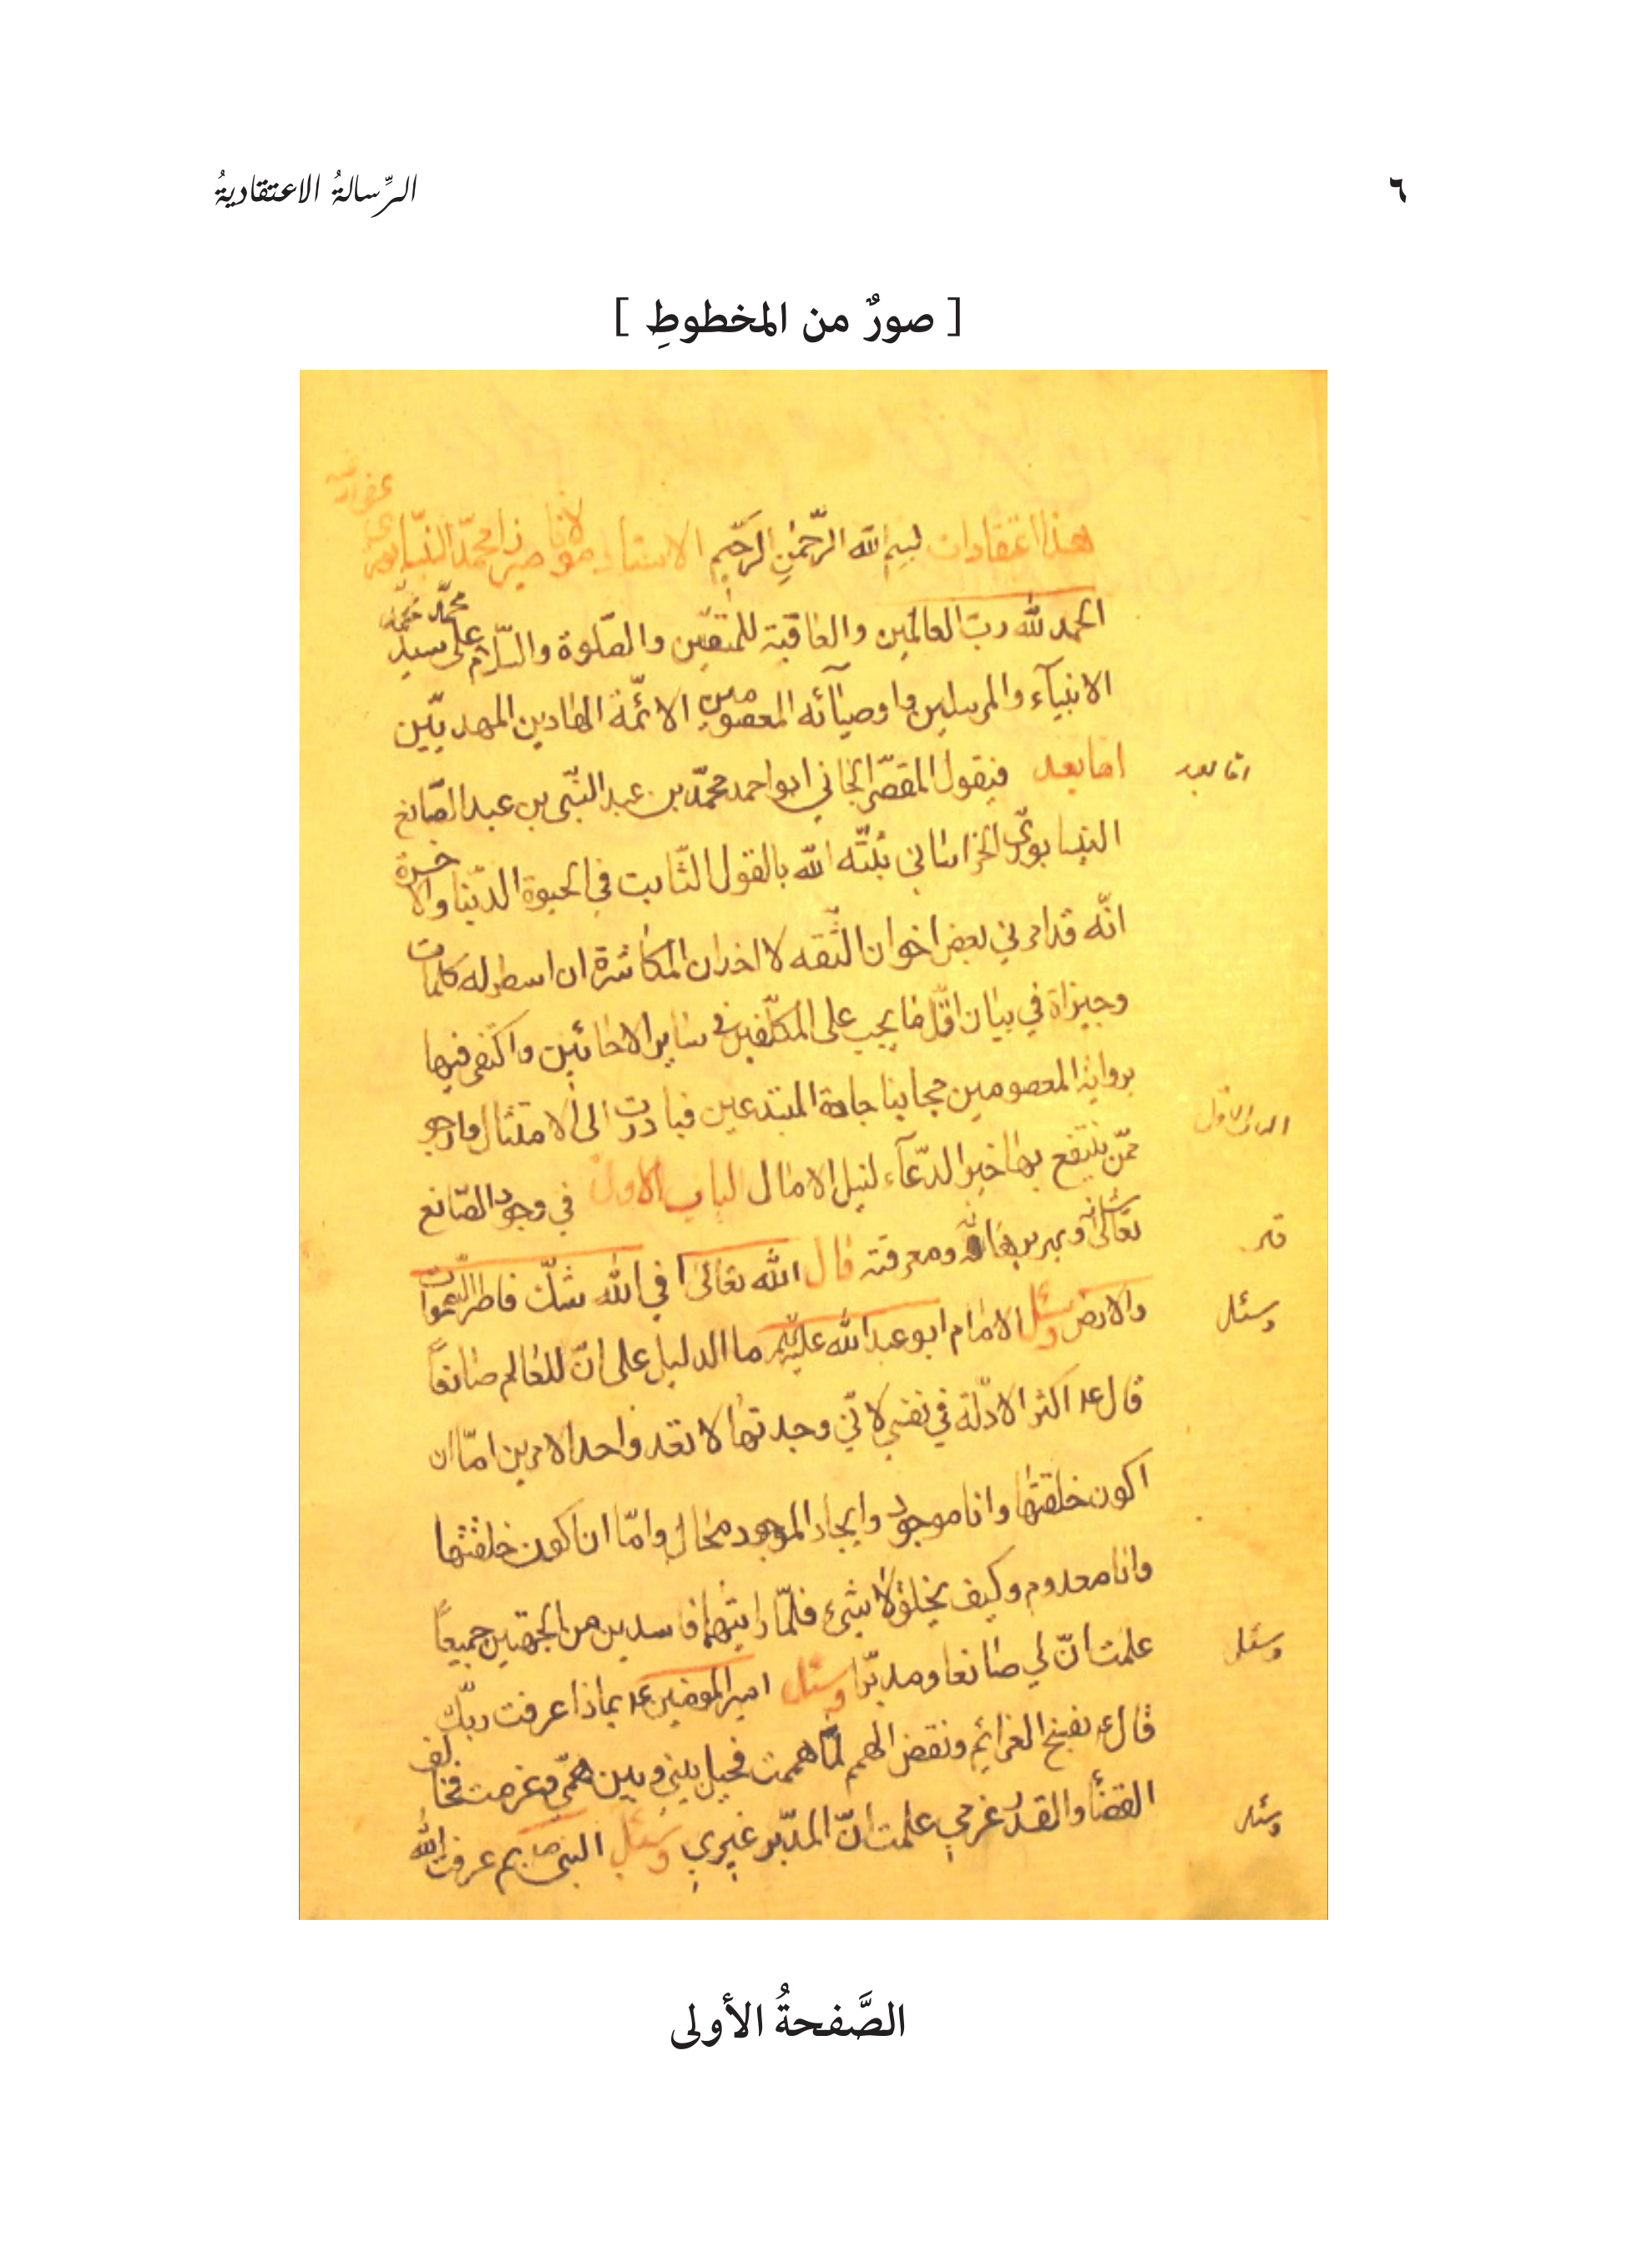 ٦
الرِّسالةُ الاعتقاديةُ
[ صورٌ من المخطوطِ ]
هذا اعتقادات بسم الله الرَّحمٰنِ الرَّحيمِ الاستاد مولانا ميرزا محمّد النيسابوري
الحمد لله ربّ العالمين والعاقبة للمتقين والصّلوة والسّلام على سيد محمّد
الانبيآء والمرسلين واوصيآئه المعصومين الائمّة الهادين المهديّين
اما بعد فيقول المقصّر الجاني ابو احمد محمّد بن عبد النّبي بن عبد الصّانع
اما بعد
النيسابوريّ الخراساني ثبّته الله بالقول الثّابت في الحيوة الدّنيا والاخرة
انّه قد امرني بعض اخوان الثّقه لا اخدان المكاشرة ان اسطر له كلمات
وجيزاة في بيان اقلّ ما يجب على المكلّفين في ساير الاحائين واكتفى فيها
برواية المعصومين مجابنا جادة المبتدعين فبادرت الى الامتثال وارجو
ممّن ينتفع بها خير الدّعآء لنيل الامال الباب الاول في وجود الصّانع
الباب الاول
تعالى شانه ومعرفته قال الله تعالى ا في الله شكّ فاطر السّموات
والارض وسئل الامام ابو عبد الله عليه السّلم ما الدليل على انّ للعالم صانعاً
وسئل
قال ع اكثر الادلّة في نفسي لانّي وجدتها لا تعدو احد الامرين امّا ان
اكون خلقتها وانا موجود وايجاد الموجود محال وامّا ان اكون خلقتها
وانا معدوم وكيف يخلق لا شيء فلمّا رايتهما فاسدين من الجهتين جميعاً
علمت انّ لي صانعا ومدبّرا وسئل امير المؤمنين ع بماذا عرفت ربّك
وسئل
قال ع بفسخ العزائم ونقض الهمم لمّا هممت فحيل بيني وبين همّي وعزمت فخالف
القضأ والقدر عزمي علمت انّ المدبّر غيري وسئل النبي ص بم عرفت الله
وسئل
الصَّفحةُ الأولى